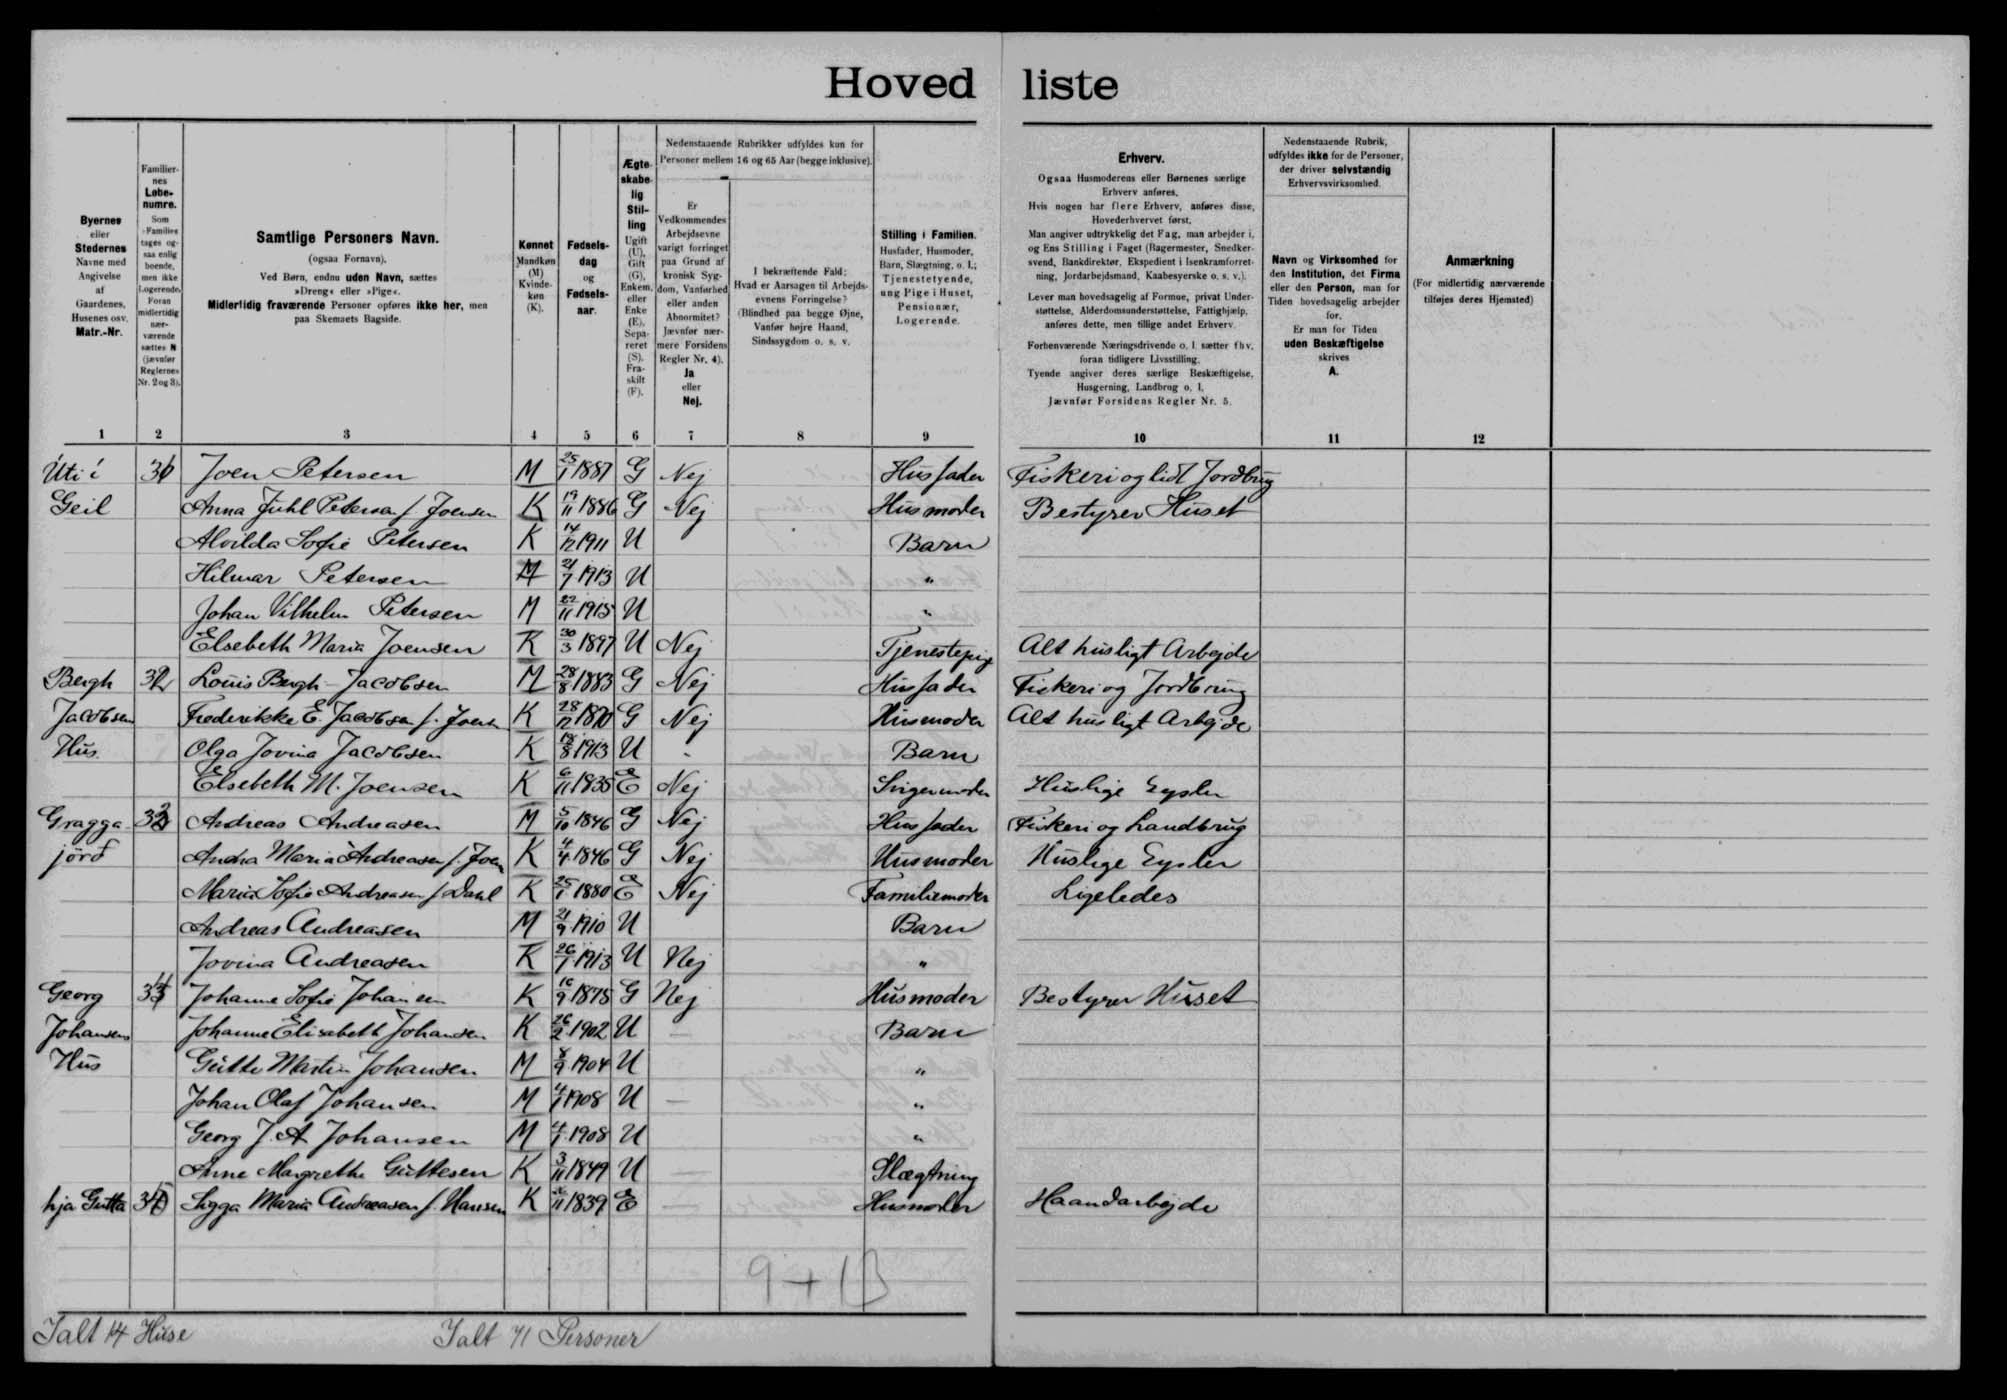 Hoved liste
Byernes eller Stedernes Navne med Angivelse af Gaardenes, Husenes osv. Matr.-Nr.
Familiernes Løbenumre. Som »Familie« tages ogsaa enlig boende, men ikke Logerende. Foran midlertidig nærværende sættes N (jævnfør Reglernes Nr. 2 og 3).
Samtlige Personers Navn.
(ogsaa Fornavn).
Ved Børn, endnu uden Navn, sættes
»Dreng« eller »Pige«.
Midlertidig fraværende Personer opføres ikke her, men
paa Skemaets Bagside.
Kønnet Mandkøn (M) Kvindekøn (K).
Fødselsdag og Fødselsaar.
Ægteskabelig Stilling Ugift (U), Gift (G), Enkem. eller Enke (E), Separeret (S). Fraskilt (F).
Nedenstaaende Rubrikker udfyldes kun for
Personer mellem 16 og 65 Aar (begge inklusive).
Er Vedkommendes Arbejdsevne varigt forringet paa Grund af kronisk Sygdom, Vanførhed eller anden Abnormitet? Jævnfør nærmere Forsidens Regler Nr. 4). Ja eller Nej.
I bekræftende Fald: Hvad er Aarsagen til Arbejdsevnens Forringelse? (Blindhed paa begge Øjne, Vanfør højre Haand, Sindssygdom o. s. v.
Stilling i Familien. Husfader, Husmoder, Barn, Slægtning, o. l.; Tjenestetyende, ung Pige i Huset, Pensionær, Logerende.
Erhverv.
Ogsaa Husmoderens eller Børnenes særlige
Erhverv anføres.
Hvis nogen har flere Erhverv, anføres disse,
Hovederhvervet først.
Man angiver udtrykkelig det Fag, man arbejder i,
og Ens Stilling i Faget (Bagermester, Snedker-
svend, Bankdirektør, Ekspedient i Isenkramforret-
ning, Jordarbejdsmand, Kaabesyerske o. s. v.).
Lever man hovedsagelig af Formue, privat Under-
støttelse, Alderdomsunderstøttelse, Fattighjælp,
anføres dette, men tillige andet Erhverv.
Forhenværende Næringsdrivende o. l. sætter fhv.
foran tidligere Livsstilling.
Tyende angiver deres særlige Beskæftigelse,
Husgerning, Landbrug o. l.
Jævnfør Forsidens Regler Nr. 5.
Nedenstaaende Rubrik,
udfyldes ikke for de Personer,
der driver selvstændig
Erhvervsvirksomhed.
Navn og Virksomhed for
den Institution, det Firma
eller den Person, man for
Tiden hovedsagelig arbejder
for.
Er man for Tiden
uden Beskæftigelse
skrives
A.
Anmærkning
(For midlertidig nærværende
tilføjes deres Hjemsted)
1 2 3 4 5 6 7 8 9 10 11 12
Úti í 31 Joen Petersen M 25/1 1887 G Nej Husfader Fiskeri og lidt Jordbrug
Geil Anna Juhl Petersen f. Joensen K 19/11 1886 G Nej Husmoder Bestyrer Huset
Alvilda Sofie Petersen K 14/12 1911 U Barn
Hilmar Petersen M 21/7 1913 U "
Johan Vilhelm Petersen M 22/11 1915 U "
Elsebeth Maria Joensen K 30/3 1897 U Nej Tjenestepige Alt husligt Arbejde
Bergh 32 Louis Bergh-Jacobsen M 28/8 1883 G Nej Husfader Fiskeri og Jordbrug
Jacobsen Frederikke E. Jacobsen f. Joens K 28/12 1870 G Nej Husmoder Alt husligt Arbejde
Hus Olga Jovina Jacobsen K 18/8 1913 U - Barn
Elsebeth M. Joensen K 6/11 1835 E Nej Svigermoder Huslige Sysler
Gragga 33 Andreas Andreasen M 5/10 1846 G Nej Husfader Fiskeri og Landbrug
jørð Anna Maria Andreasen f. Joen K 4/4 1846 G Nej Husmoder Huslige Sysler
Maria Sofie Andreasen f. Dahl K 25/1 1880 E Nej Familiemoder Ligeledes
Andreas Andreasen M 21/9 1910 U Barn
Jovina Andreasen K 26/1 1913 U Nej "
Georg 34 Johanne Sofie Johansen K 16/9 1875 G Nej Husmoder Bestyrer Huset
Johansens Johanne Elisabeth Johansen K 26/2 1902 U — Barn
Hus Gutte Martin Johansen M 8/9 1904 U "
Johan Olaf Johansen M 4/1 1908 U — "
Georg J. A. Johansen M 4/1 1908 U "
Anne Margrethe Guttesen K 3/11 1849 U — Slægtning
hja Gutta 35 Sigga Maria Andreasen f. Hansen K /11 1839 E — Husmoder Haandarbejde
9 + 13
Ialt 14 Huse Ialt 71 Personer